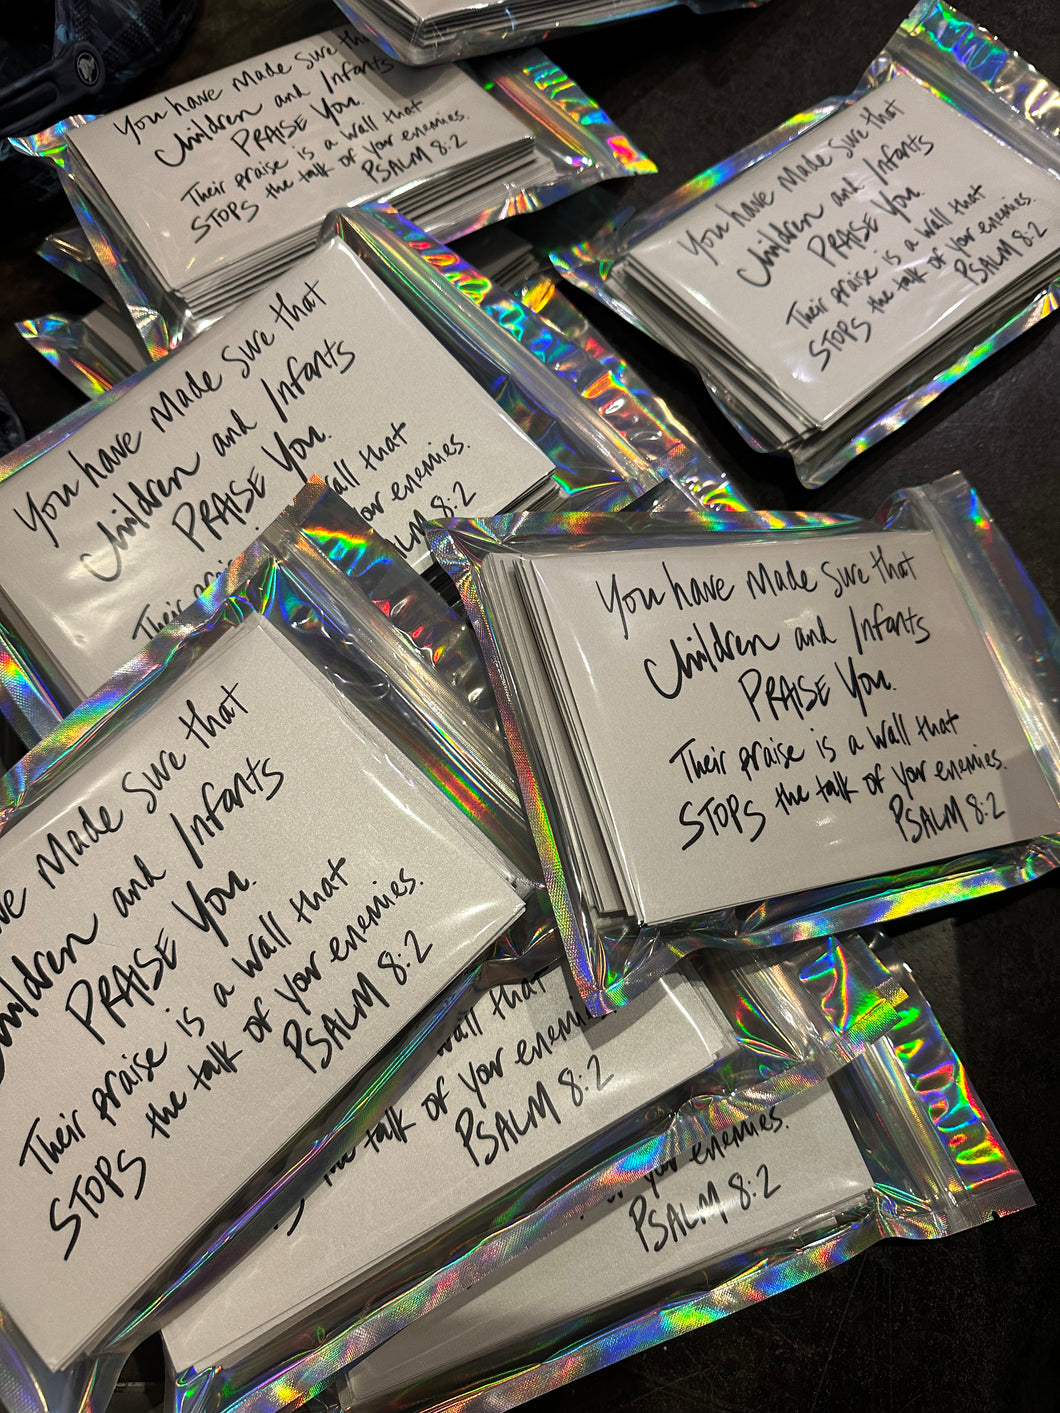 You have Made Sure th
Children and Infants
PRAISE You.
Their praise is a wall that
STOPS the talk of your enemies.
PSALM 8:2
You have Made Sure that
Children and Infants
PRAISE You.
Their praise is a wall that
STOPS the talk of your enemies.
PSALM 8:2
You have Made Sure that
Children and Infants
PRAISE You.
Their prai wall that
your enemies.
PSALM 8:2
You have Made Sure that
Children and Infants
PRAISE You.
Their praise is a wall that
STOPS the talk of your enemies.
PSALM 8:2
Made Sure that
Children and Infants
PRAISE You.
Their praise is a wall that
STOPS the talk of your enemies.
PSALM 8:2
wall that
the talk of your enemi
PSALM 8:2
of your enemies.
PSALM 8:2